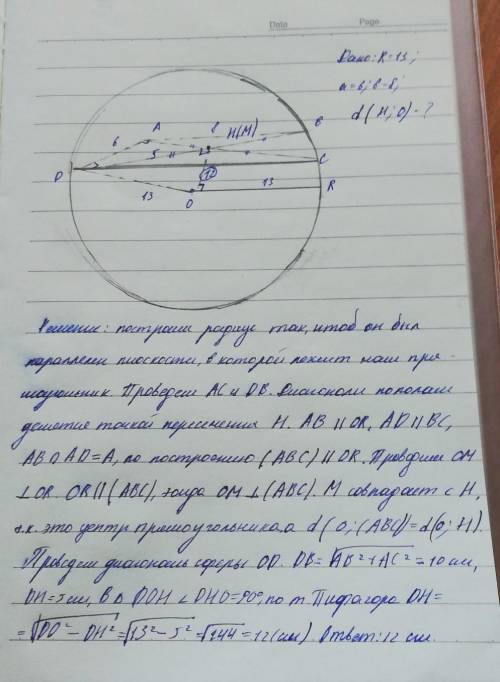 Data Page
Дано: R=13;
a=6; b=8;
d(H;O)-?
A 8 H(M) B
6
5
D C
12
13 O 13 R
Решение: построим радиус так, чтоб он был
параллелен плоскости, в которой лежит наш пря-
моугольник. Проведем AC и DB. Диагонали пополам
делятся точкой пересечения H. AB || OR, AD || BC,
AB ∩ AD = A, по построению (ABC) || OR. Проведем OM
⊥ OR. OR || (ABC), тогда OM ⊥ (ABC). M совпадает с H,
т.к. это центр прямоугольника, а d(O;(ABC))=d(O;H).
Проведем диагональ сферы OD. DB=√AB²+AC²=10 см,
DH=5 см, В Δ DOH ∠DHO=90°, по т. Пифагора OH=
=√DO²-DH²=√13²-5²=√144=12(см). Ответ: 12 см.